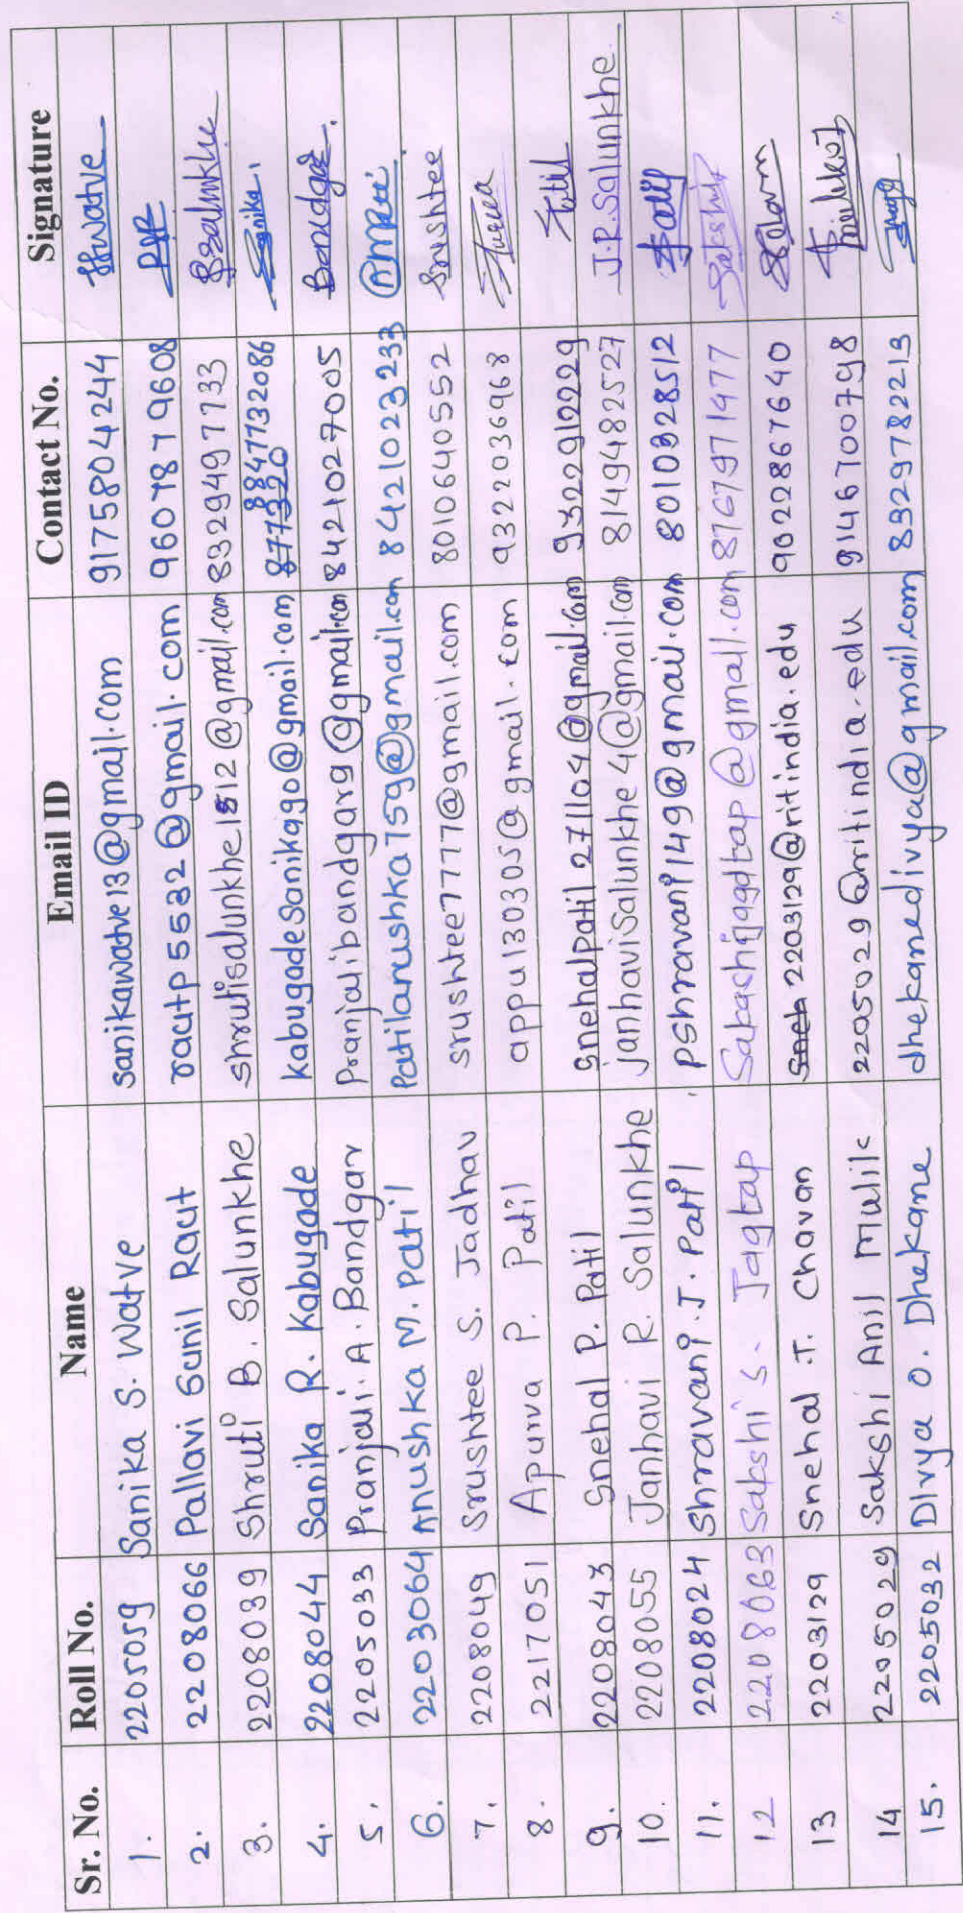 Sr. No. Roll No. Name Email ID Contact No. Signature
1. 2205059 Sanika S. Watve sanikawatve13@gmail.com 9175804244 SWatve
2. 2208066 Pallavi Sunil Raut rautp5532@gmail.com 9607879608 PSR
3. 2208039 Shruti B. Salunkhe shrutisalunkhe1512@gmail.com 8329497733 BSalunkhe
4. 2208044 Sanika R. Kabugade kabugadesanika90@gmail.com 877320 8847732086 Sanika.
5. 2205033 Pranjali. A. Bandgar Pranjalibandgar9@gmail.com 8421027005 Bandgar.
6. 2203064 Anushka M. Patil Patilanushka759@gmail.com 8421023233
7. 2208049 Srushtee S. Jadhav srushtee7777@gmail.com 8010640552 Srushtee
8. 2217051 Apurva P. Patil appu130305@gmail.com 9322036968
9. 2208043 Snehal P. Patil Snehalpatil271104@gmail.com 9322912229 Patil
10. 2208055 Janhavi R. Salunkhe janhavisalunkhe4@gmail.com 8149482527 J.R.Salunkhe.
11. 2208024 Shravani. J. Patil pshravani1149@gmail.com 8010328512
12 2208063 Sakshi S. Jagtap Sakashijagdtap@gmail.com 8767971477 Sakshi
13 2203129 Snehal .T. Chavan Sneh 2203129@ritindia.edu 9022867640
14 2205029 Sakshi Anil Mulik 2205029@ritindia.edu 9146700798
15. 2205032 Divya O. Dhekane dhekanedivya@gmail.com 8329782213